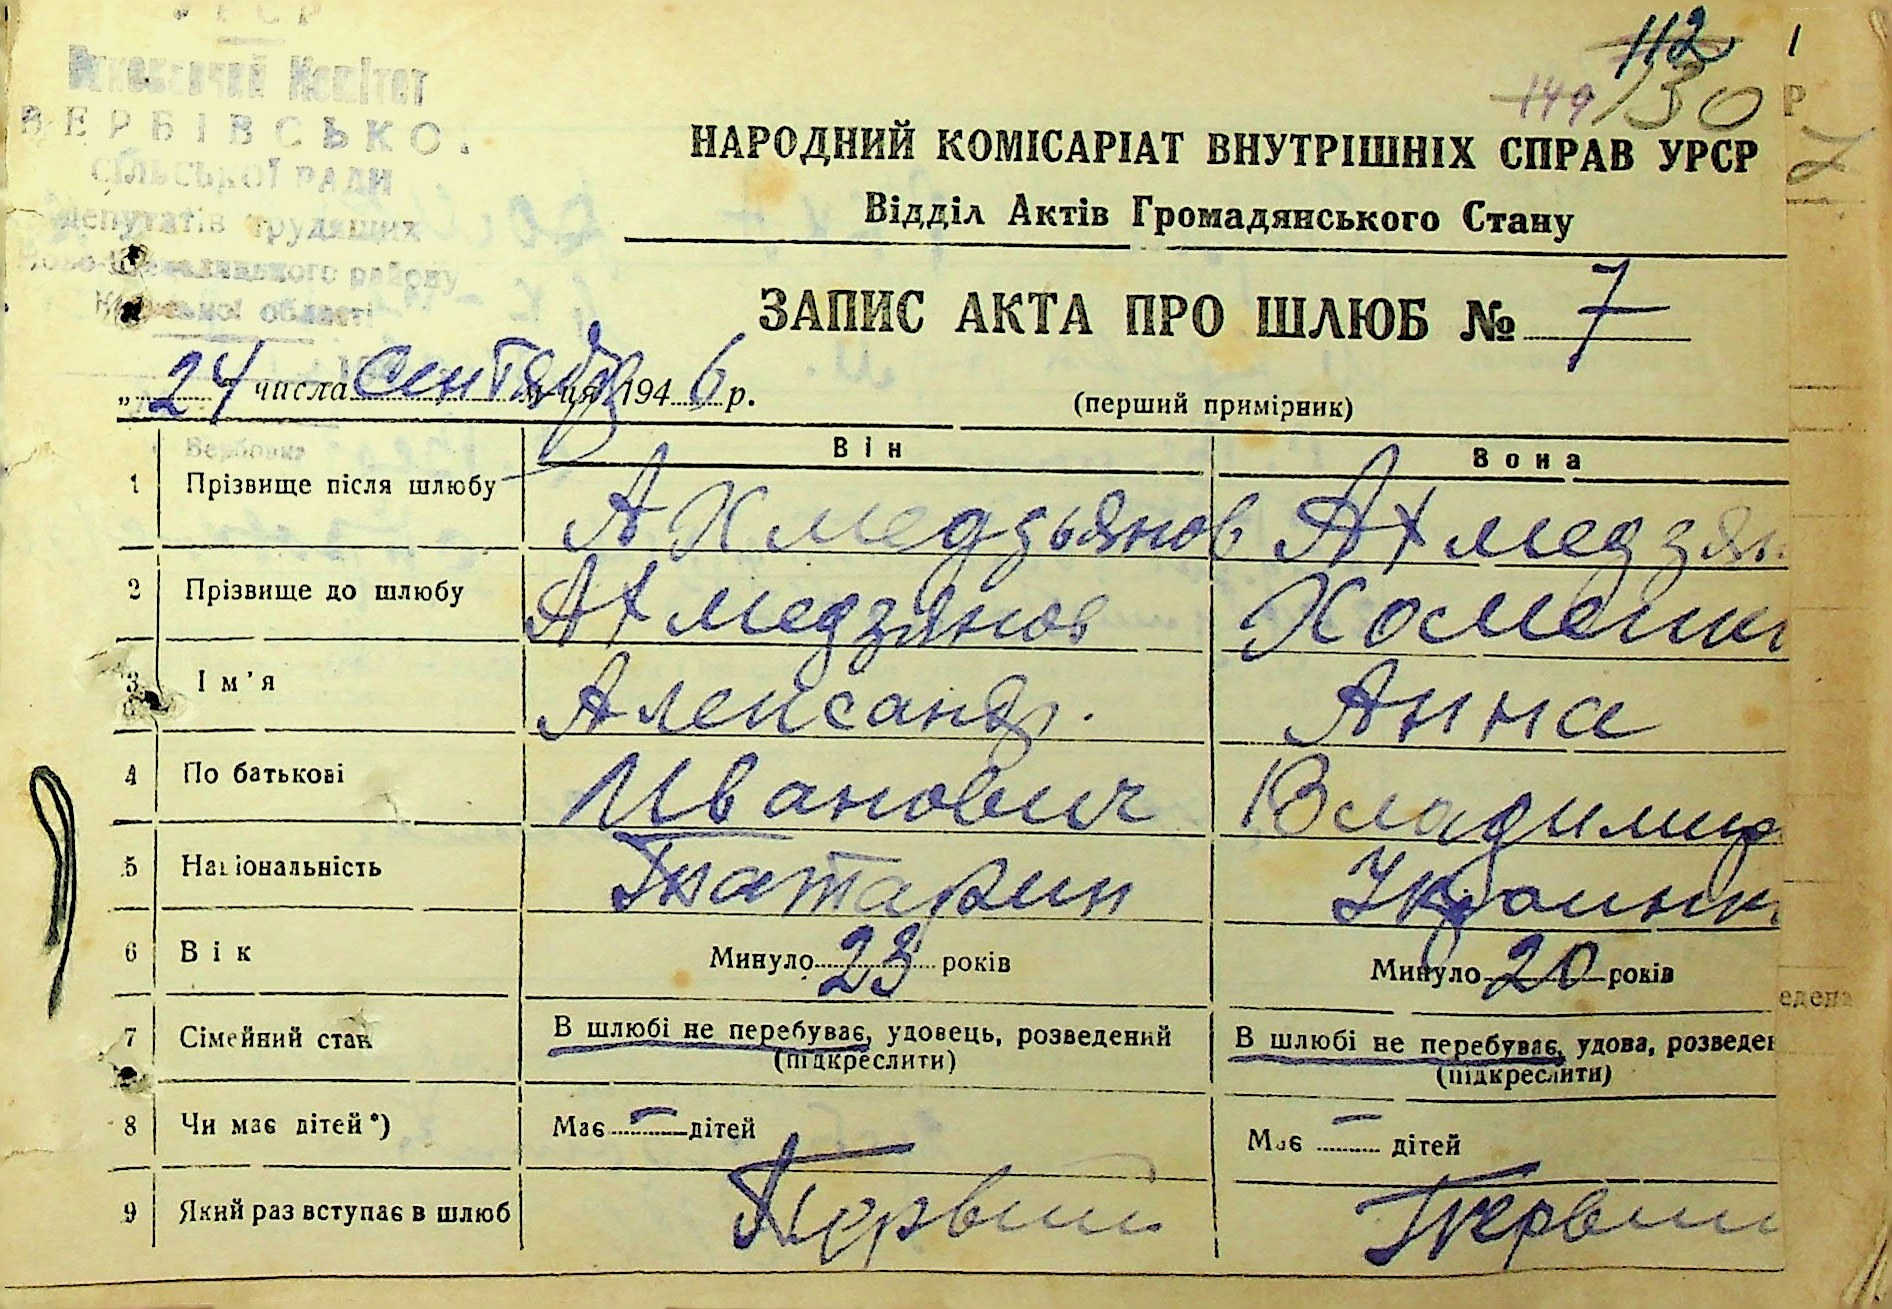 УРСР
Виконавчий Комітет
ВЕРБІВСЬКО.
СІЛЬСЬКОЇ РАДИ
депутатів трудящих
району
області
112
149 130
НАРОДНИЙ КОМІСАРІАТ ВНУТРІШНІХ СПРАВ УРСР
Відділ Актів Громадянського Стану
ЗАПИС АКТА ПРО ШЛЮБ № 7
„ 24 " числа Сентября м-ця 194 6 р.
(перший примірник)
Вербовка
Він Вона
1 Прізвище після шлюбу Ахмедзьянов Ахмедзян
2 Прізвище до шлюбу Ахмедзянов Хоменк
3 Ім'я Александр. Анна
4 По батькові Иванович Владимир
5 Національність Татарин Украинк
6 Вік Минуло 23 років Минуло 20 років
7 Сімейний стан В шлюбі не перебуває, удовець, розведений В шлюбі не перебуває, удова, розведен
(підкреслити) (підкреслити)
8 Чи має дітей*) Має – дітей Має – дітей
9 Який раз вступає в шлюб Первий Первий
едена